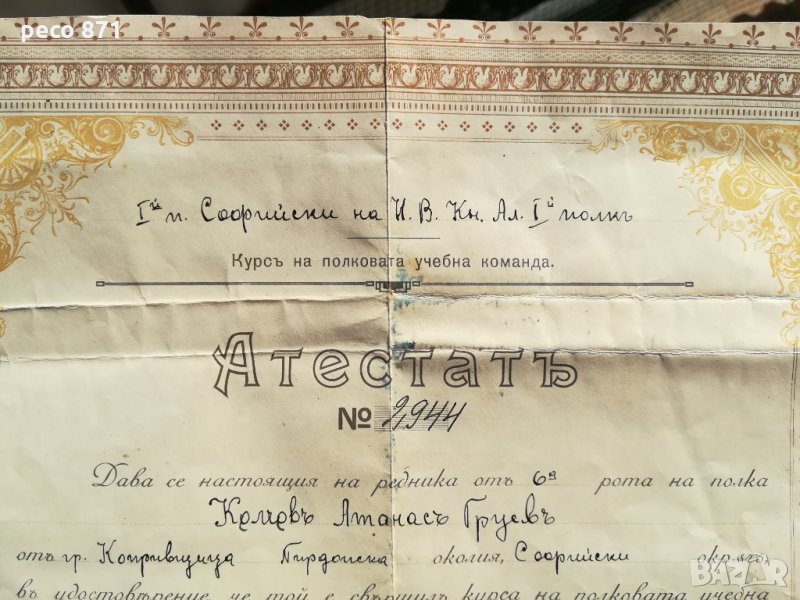 peco 871
Iй п. Софийски на Н. В. Кн. Ал. Iй полкъ
Курсъ на полковата учебна команда.
Атестатъ
№ 2944
Дава се настоящия на редника отъ 6а рота на полка
Атанасъ Груевъ
отъ гр. Копривщица Пирдопска околия, Софийски окр.
въ удостовѣрение, че той е свършилъ курса на полковата учебна
BAZAR